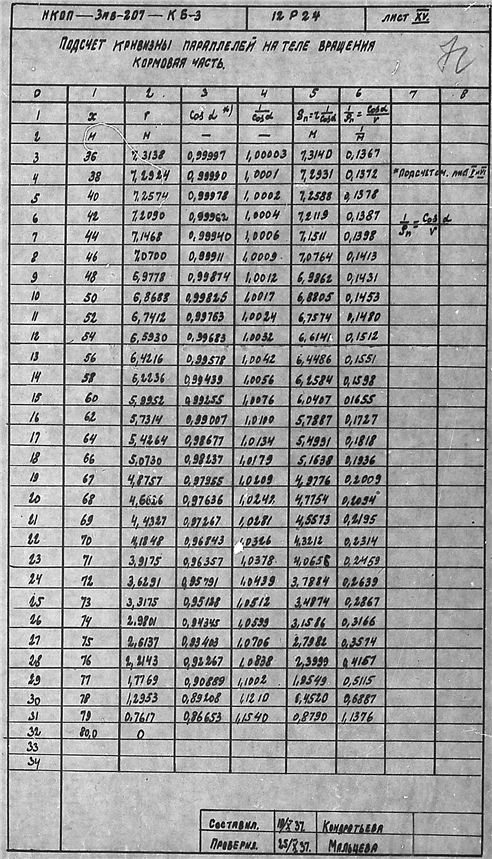 НКОП—Зав-207—КБ-3 12Р24 ЛИСТ XV.
ПОДСЧЕТ КРИВИЗНЫ ПАРАЛЛЕЛЕЙ НА ТЕЛЕ ВРАЩЕНИЯ
КОРМОВАЯ ЧАСТЬ.
0 1 2 3 4 5 6 7 8
1 x r Cos α *) 1/Cos α ρn=r 1/Cos α 1/ρn = Cos α/r
2 М М — — М 1/М
3 36 7,3138 0,99997 1,00003 7,3140 0,1367
4 38 7,2924 0,99990 1,0001 7,2931 0,1372 *Подсчет см. лист
5 40 7,2574 0,99978 1,0002 7,2588 0,1378
6 42 7,2090 0,99962 1,0004 7,2119 0,1387 1/ρn = Cos α/r
7 44 7,1468 0,99940 1,0006 7,1511 0,1398
8 46 7,0700 0,99911 1,0009 7,0764 0,1413
9 48 6,9778 0,99874 1,0012 6,9862 0,1431
10 50 6,8688 0,99825 1,0017 6,8805 0,1453
11 52 6,7412 0,99763 1,0024 6,7574 0,1480
12 54 6,5930 0,99683 1,0032 6,6141 0,1512
13 56 6,4216 0,99578 1,0042 6,4486 0,1551
14 58 6,2236 0,99439 1,0056 6,2584 0,1598
15 60 5,9952 0,99255 1,0076 6,0407 01655
16 62 5,7314 0,99007 1,0100 5,7887 0,1727
17 64 5,4264 0,98677 1,0134 5,4991 0,1818
18 66 5,0730 0,98237 1,0179 5,1638 0,1936
19 67 4,8757 0,97955 1,0209 4,9776 0,2009
20 68 4,6626 0,97636 1,0242 4,7754 0,2094
21 69 4,4327 0,97267 1,0281 4,5573 0,2195
22 70 4,1848 0,96843 1,0326 4,3212 0,2314
23 71 3,9175 0,96357 1,0378 4,0656 0,2459
24 72 3,6291 0,95791 1,0439 3,7884 0,2639
25 73 3,3175 0,95128 1,0512 3,4874 0,2867
26 74 2,9801 0,94345 1,0599 3,1586 0,3166
27 75 2,6137 0,93403 1,0706 2,7982 0,3574
28 76 2,2143 0,92267 1,0838 2,3999 0,4167
29 77 1,7769 0,90889 1,1002 1,9549 0,5115
30 78 1,2953 0,89208 1,1210 1,4520 0,6887
31 79 0,7617 0,86653 1,1540 0,8790 1,1376
32 80,0 0
33
34
СОСТАВИЛ. 37. КОНДРАТЬЕВА
ПРОВЕРИЛ. 37. МАЛЬЦЕВА